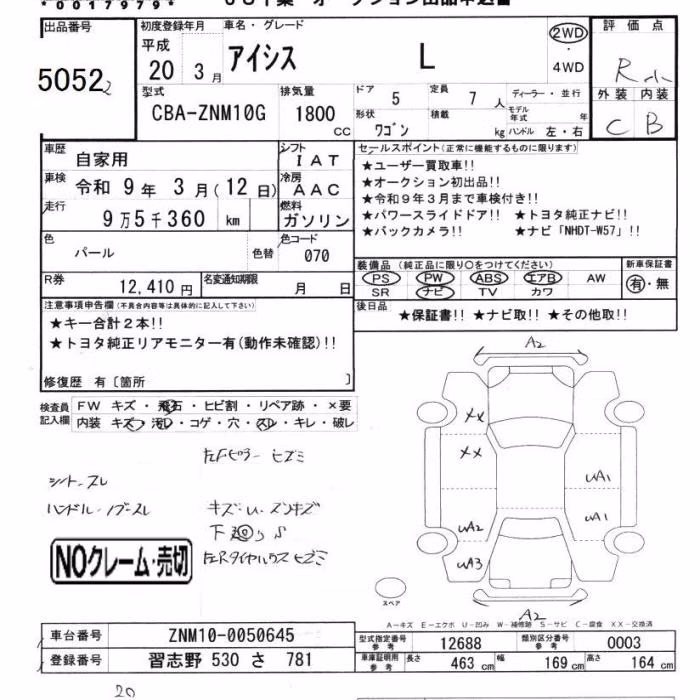 *0017979*
出品番号
5052 2
初度登録年月
平成
20 3月
車名・グレード
アイシス L
2WD
・
4WD
評価点
R 小
型式
CBA-ZNM10G
排気量
1800
CC
ドア 5
定員 7 人
ディーラー・並行
形状 ワゴン
積載 kg
モデル年式 年
ハンドル 左・右
外装 内装
C B
車歴 自家用
シフト IAT
車検 令和 9年 3月(12日)
冷房 AAC
走行 9万5千360 km
燃料 ガソリン
色 パール 色替
色コード 070
R券 12,410円
名変通知期限 月 日
セールスポイント(正常に機能するものに限ります)
★ユーザー買取車!!
★オークション初出品!!
★令和9年3月まで車検付き!!
★パワースライドドア!! ★トヨタ純正ナビ!!
★バックカメラ!! ★ナビ「NHDT-W57」!!
装備品(純正品に限り○をつけてください)
PS PW ABS エアB AW
SR ナビ TV カワ
新車保証書
有・無
後日品 ★保証書!! ★ナビ取!! ★その他取!!
注意事項申告欄(不具合内容等は具体的に記入して下さい)
★キー合計2本!!
★トヨタ純正リアモニター有(動作未確認)!!
修復歴 有〔箇所 〕
検査員記入欄
FW キズ・飛石・ヒビ割・リペア跡・×要
内装 キズ・汚レ・コゲ・穴・スレ・キレ・破レ
左Fピラー ヒズミ
シート・スレ
ハンドル・ノブ・スレ
キズ・U・ズンキズ
下廻りS
左Rタイヤハウスヒズミ
NOクレーム・売切
A2
XX
XX
UA1
UA2
UA1
UA3
A2
スペア
A-キズ E-エクボ U-凹み W-補修跡 S-サビ C-腐食 XX-交換済
車台番号 ZNM10-0050645
登録番号 習志野 530 さ 781
型式指定番号 参考 12688
類別区分番号 参考 0003
車庫証明用 参考 長さ 463 cm 幅 169 cm 高さ 164 cm
20